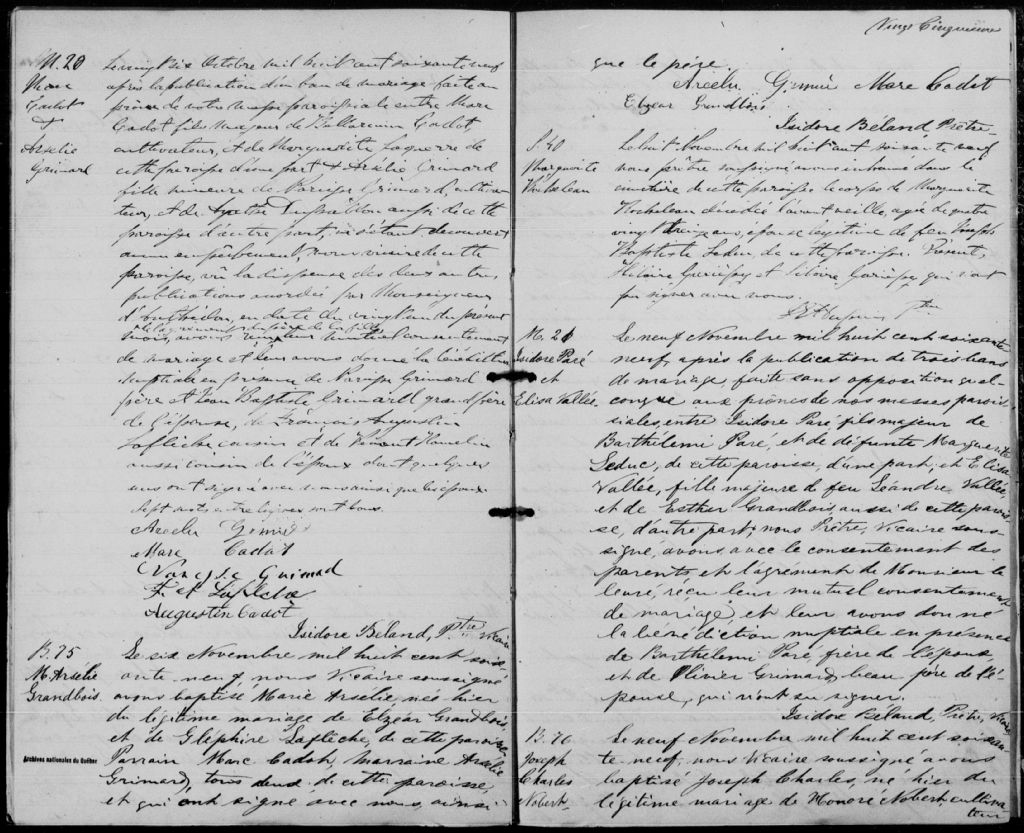 M. 20
Marc
Cadot
&
Arsélie
Grimard
Le vingt six Octobre mil huit cent soixante neuf
après la publication d'un ban de mariage faite au
prône de notre messe paroissiale entre Marc
Cadot fils majeur de Cadot,
cultivateur, et de Marguerite Laquerre de
cette paroisse d'une part & Arsélie Grimard
fille mineure de Narcisse Grimard, cultiva-
teur, et de aussi de cette
paroisse d'autre part, ne s'étant découvert
aucun empêchement Nous vicaire de cette
paroisse, vû la dispense des deux autres
publications accordée par Monseigneur
en date du vingt un du présent
et l'agrément du père de la fille
mois, avons reçu leur mutuel consentement
de mariage et leur avons donné la bénédiction
nuptiale en présence de Narcisse Grimard
père et Jean Baptiste Grimard grand père
de l'épouse, de François Augustin
Laflèche cousin et de Hamelin
aussi cousin de l'époux dont quelques
uns ont signé avec nous ainsi que les époux
Sept mots entre lignes sont bons.
Arcelie
Marc Cadot
Narcisse Guimad
F. et Lafleche
Augustin Cadot
Isidore Béland, Ptre Vicaire
B. 75
M. Arsélie
Grandbois.
Le six Novembre mil huit cent soix-
ante-neuf, nous Vicaire soussigné
avons baptisé Marie Arsélie, née hier
du légitime mariage de Elzéar Grandbois,
et de Gléphire Laflèche, de cette paroisse
Parrain Marc Cadot, marraine Arsélie
Grimard, tous deux de cette paroisse,
et qui ont signé avec nous, ainsi
Archives nationales du Québec
Vingt Cinquième
que le père.
Arcelie Marc Cadot
Elzear Grandbois
Isidore Béland, Prêtre
S. 40
Marguerite
Rocheleau
Le huit Novembre mil huit cent soixante neuf
nous prêtre soussigné avons inhumé dans le
cimetière de cette paroisse le corps de Marguerite
Rocheleau décédée l'avant veille, agée de quatre
vingt treize ans, épouse légitime de feu Joseph
Baptiste Leduc, de cette paroisse. Présents,
Hilaire Gariépy et Gariépy qui n'ont
pu signer avec nous.
Ptre
M. 21
Isidore Paré
et
Elisa Vallée.
Le neuf Novembre mil huit cent soixante
neuf, après la publication de trois bans
de mariage, faite sans opposition quel-
conque aux prônes de nos messes parois-
siales, entre Isidore Paré, fils majeur de
Barthélemi Paré, et de défunte Marguerite
Leduc, de cette paroisse, d'une part; et Elisa
Vallée, fille majeure de feu Léandre Vallée,
et de Esther Grandbois aussi de cette parois-
se, d'autre part; nous Prêtre, Vicaire sous-
signé, avons, avec le consentement des
parents et l'agrément de Monsieur le
Curé, reçu leur mutuel consentement
de mariage, et leur avons donné
la bénédiction nuptiale en présence
de Barthélemi Paré, frère de l'époux
et de Olivier Grimard, beau frère de l'é-
pouse, qui n'ont su signer.
Isidore Béland, Prêtre, Vicaire
B. 76
Joseph
Charles
Nobert
Le neuf Novembre mil huit cent soixan-
te-neuf, nous Vicaire soussigné avons
baptisé Joseph Charles, né hier du
légitime mariage de Honoré Nobert, cultiva-
teur